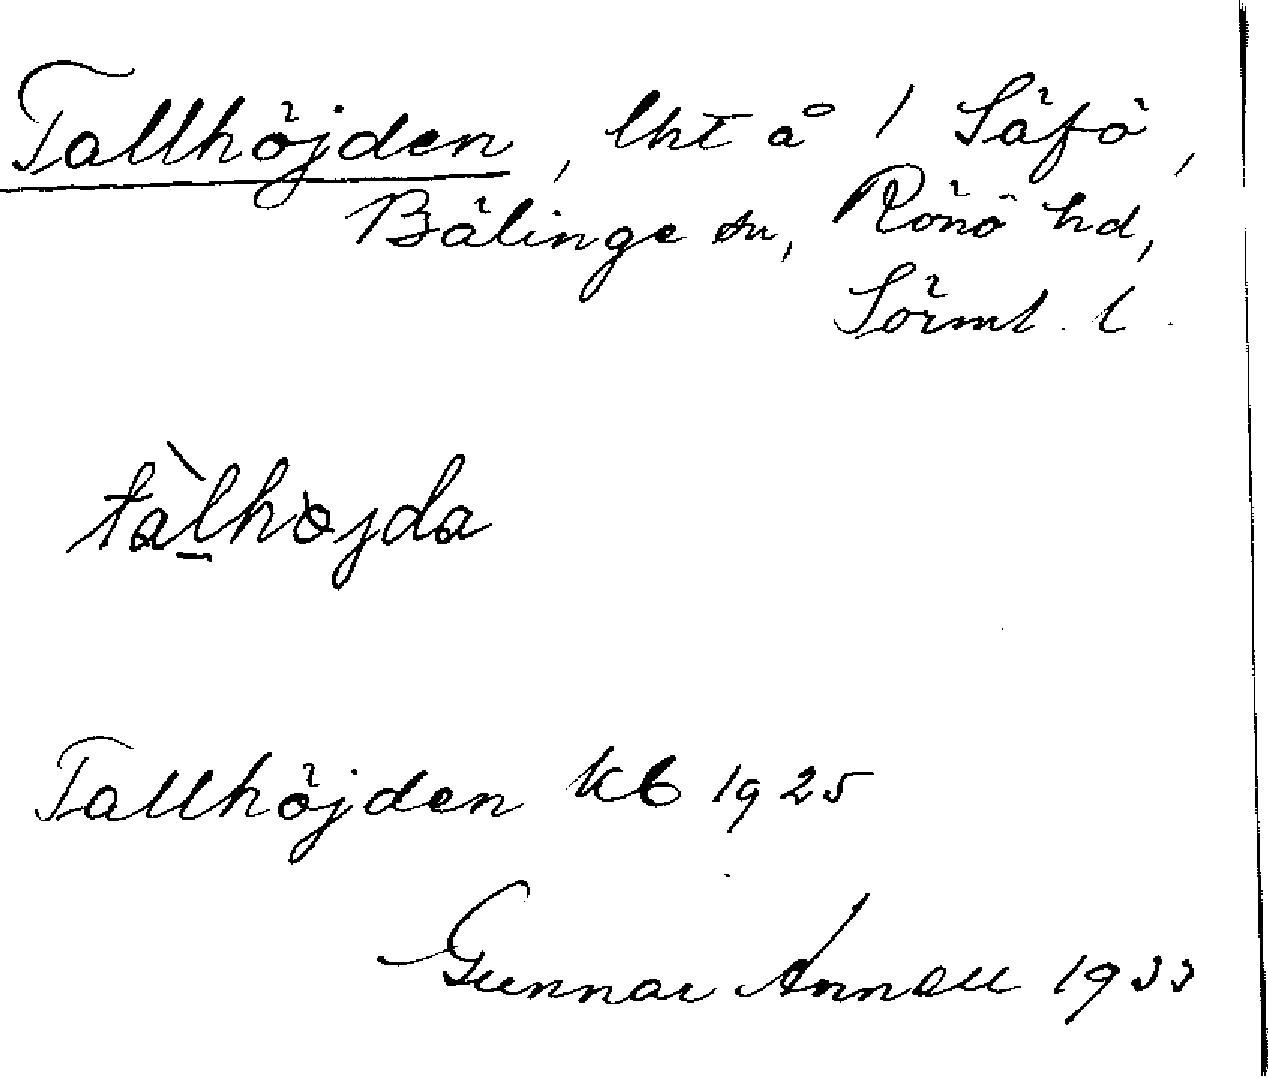 Tallhöjden, lht å 1 Säfö,
Bälinge sn, Rönö hd,
Sörml. l.
tàl̲højda
Tallhöjden kb 1925
Gunnar Annell 1933